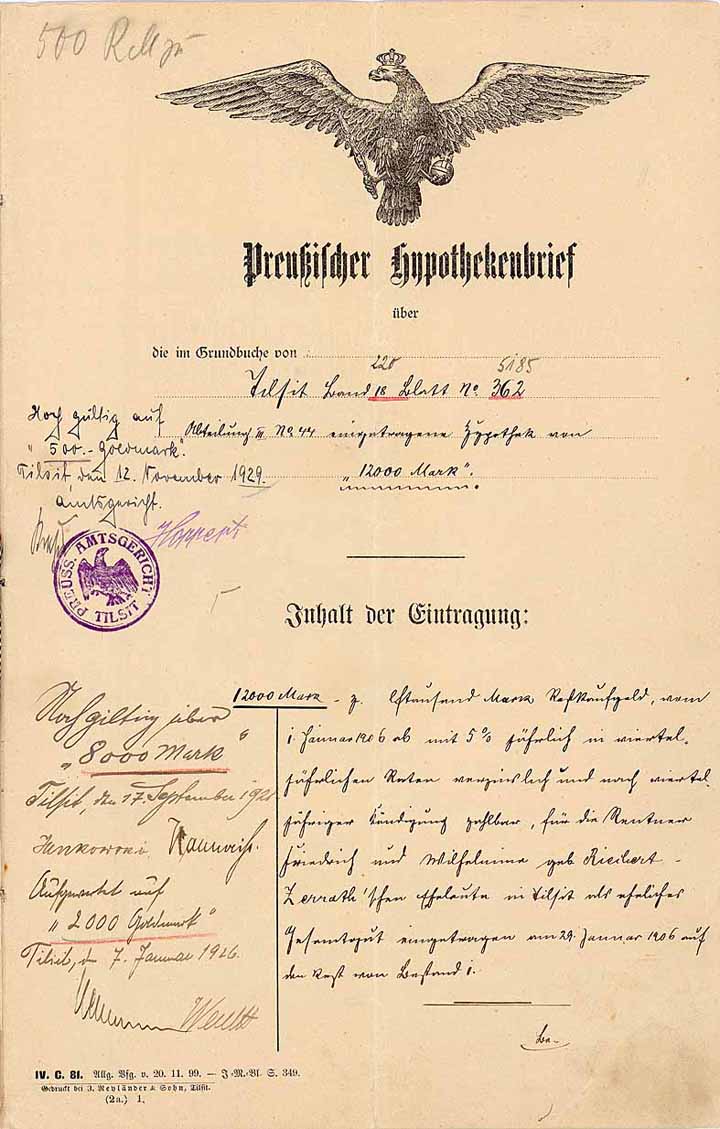 500
Preußischer Hypothekenbrief
über
die im Grundbuche von
220 5185
Tilsit Band 18 Blatt No 362
Abteilung III No 44 eingetragene Hypothek von
„12000 Mark".
Noch gültig auf
„500.- Goldmark".
Tilsit, den 12. November 1929.
Amtsgericht.
PREUSS. AMTSGERICHT
TILSIT
Inhalt der Eintragung:
12000 Mark - z. Restkaufgeld, vom
1. Januar 1906 ab mit 5% jährlich in viertel-
jährlichen Raten verzinslich und nach viertel-
jähriger Kündigung zahlbar, für die Rentner
Friedrich und Wilhelmine geb
Zerrath'schen Eheleute in Tilsit als eheliches
Gesamtgut eingetragen am 29. Januar 1906 auf
den Rest von Bestand 1.
Noch giltig über
„8000 Mark"
Tilsit, den 17. September 192
Aufgewertet auf
„2000 Goldmark"
Tilsit, d 7. Januar 1926.
IV. C. 81. Allg. Vfg. v. 20. 11. 99. – J.-M.-Bl. S. 349.
Gedruckt bei J. Reyländer & Sohn, Tilsit.
(2a.) 1.